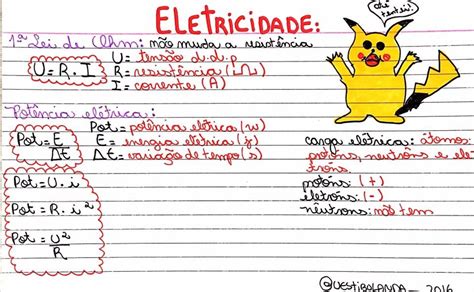 ELETRICIDADE:
1ª Lei de Ohm: não muda a resistência
U = R . I
U = tensão d.d.p
R = resistência (Ω)
I = corrente (A)
Oi tentei!
Potência elétrica:
Pot = E/ΔE
Pot = potência elétrica (w)
E = energia elétrica (j)
ΔE = variação de tempo (s)
Pot = U . i
Pot = R . i²
Pot = U²/R
carga elétrica: átomo:
prótons, neutrôns e elé
trons.
protóns: (+)
elétrons: (-)
nêutrons: não tem
@VESTIBOLANDA — 2016